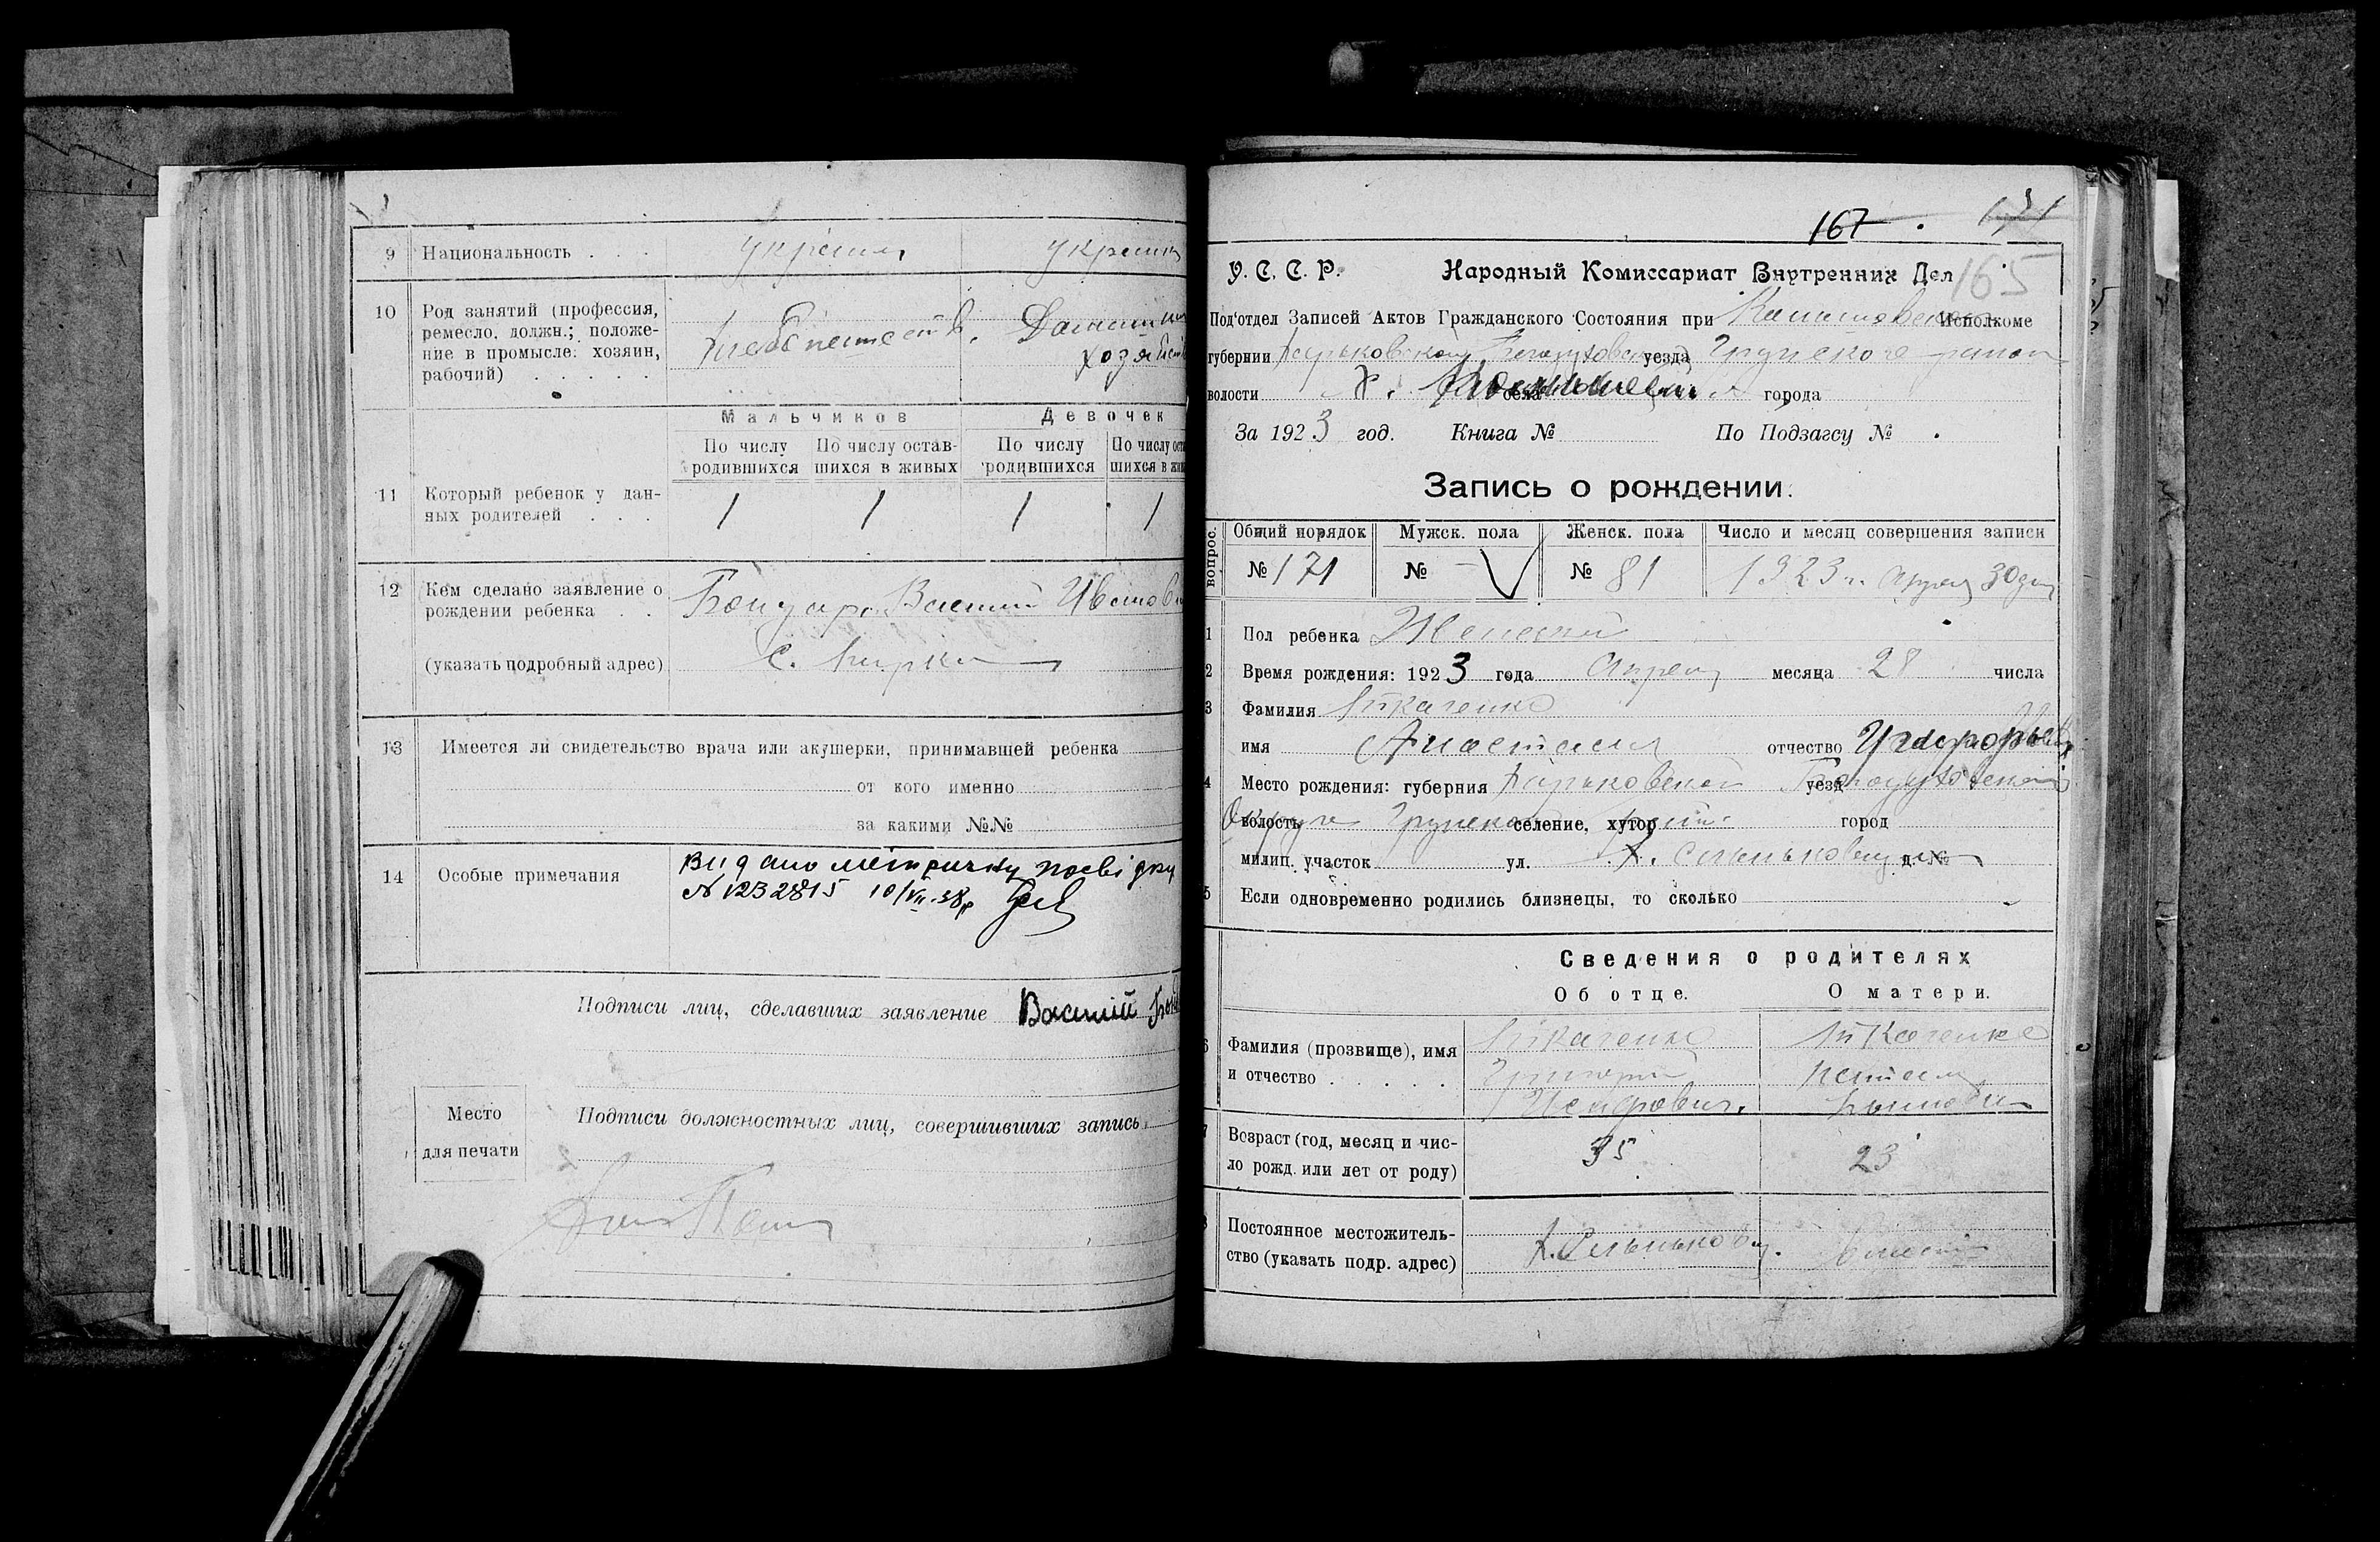 9 Национальность . . . украин. украинк
10 Род занятий (профессия,
ремесло, должн.; положе-
ние в промысле: хозяин,
рабочий) . . . . .
Хлебопашеств. Домашн
хозяйств
Мальчиков Девочек
По числу По числу остав- По числу По числу ост
родившихся шихся в живых родившихся шихся в жи
11 Который ребенок у дан-
ных родителей . . .
1 1 1 1
12 Кем сделано заявление о
рождении ребенка . .
Бондарь Василий Иванови
(указать подробный адрес) с.
13 Имеется ли свидетельство врача или акушерки, принимавшей ребенка
от кого именно
за какими №№
14 Особые примечания
Видано метричну посвідку
№ 1232815 10/VII-38р
Подписи лиц, сделавших заявление Василий Бон
Место
для печати
Подписи должностных лиц, совершивших запись
167 . 171
165
У. С. С. Р. Народный Комиссариат Внутренних Дел
Под'отдел Записей Актов Гражданского Состояния при Исполкоме
губернии Харьковской Богодуховск уезда Грунского район
волости Х. села города
За 1923 год. Книга № По Подзагсу № .
Запись о рождении.
вопрос. Общий порядок Мужск. пола Женск. пола Число и месяц совершения записи
№ 171 № – V № 81 1923 г. Апреля 30 дня
1 Пол ребенка Женский
2 Время рождения: 1923 года Апреля месяца 28 числа
3 Фамилия Ткаченко
имя Анастасия отчество
4 Место рождения: губерния Харьковской уезд Богодуховский
Округа волость Грунской селение, хутор город
милиц. участок ул. х. д. №
5 Если одновременно родились близнецы, то сколько
Сведения о родителях
Об отце. О матери.
6 Фамилия (прозвище), имя
и отчество . . . . .
Ткаченко Ткаченко
Григорий
7 Возраст (год, месяц и чис-
ло рожд. или лет от роду)
35 23
8 Постоянное местожитель-
ство (указать подр. адрес)
х. вместе